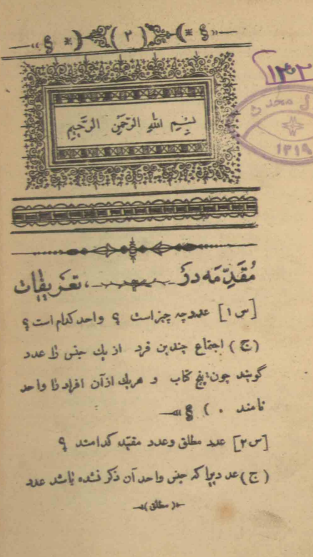 (۲)
بسم الله الرحمن الرحیم
مقدّمه در تعریفات
[س ۱] عدد چه چیز است ؟ واحد کدام است ؟
(ج) اجتماع چندین فرد از یك جنس را عدد
گویند چون پنج کتاب و هر یك از آن افراد را واحد
نامند .
[س ۲] عدد مطلق و عدد مقیّد کدامند ؟
(ج) عددیرا که جنس واحد آن ذکر نشده باشد عدد
(مطلق)
۱۳۱۹